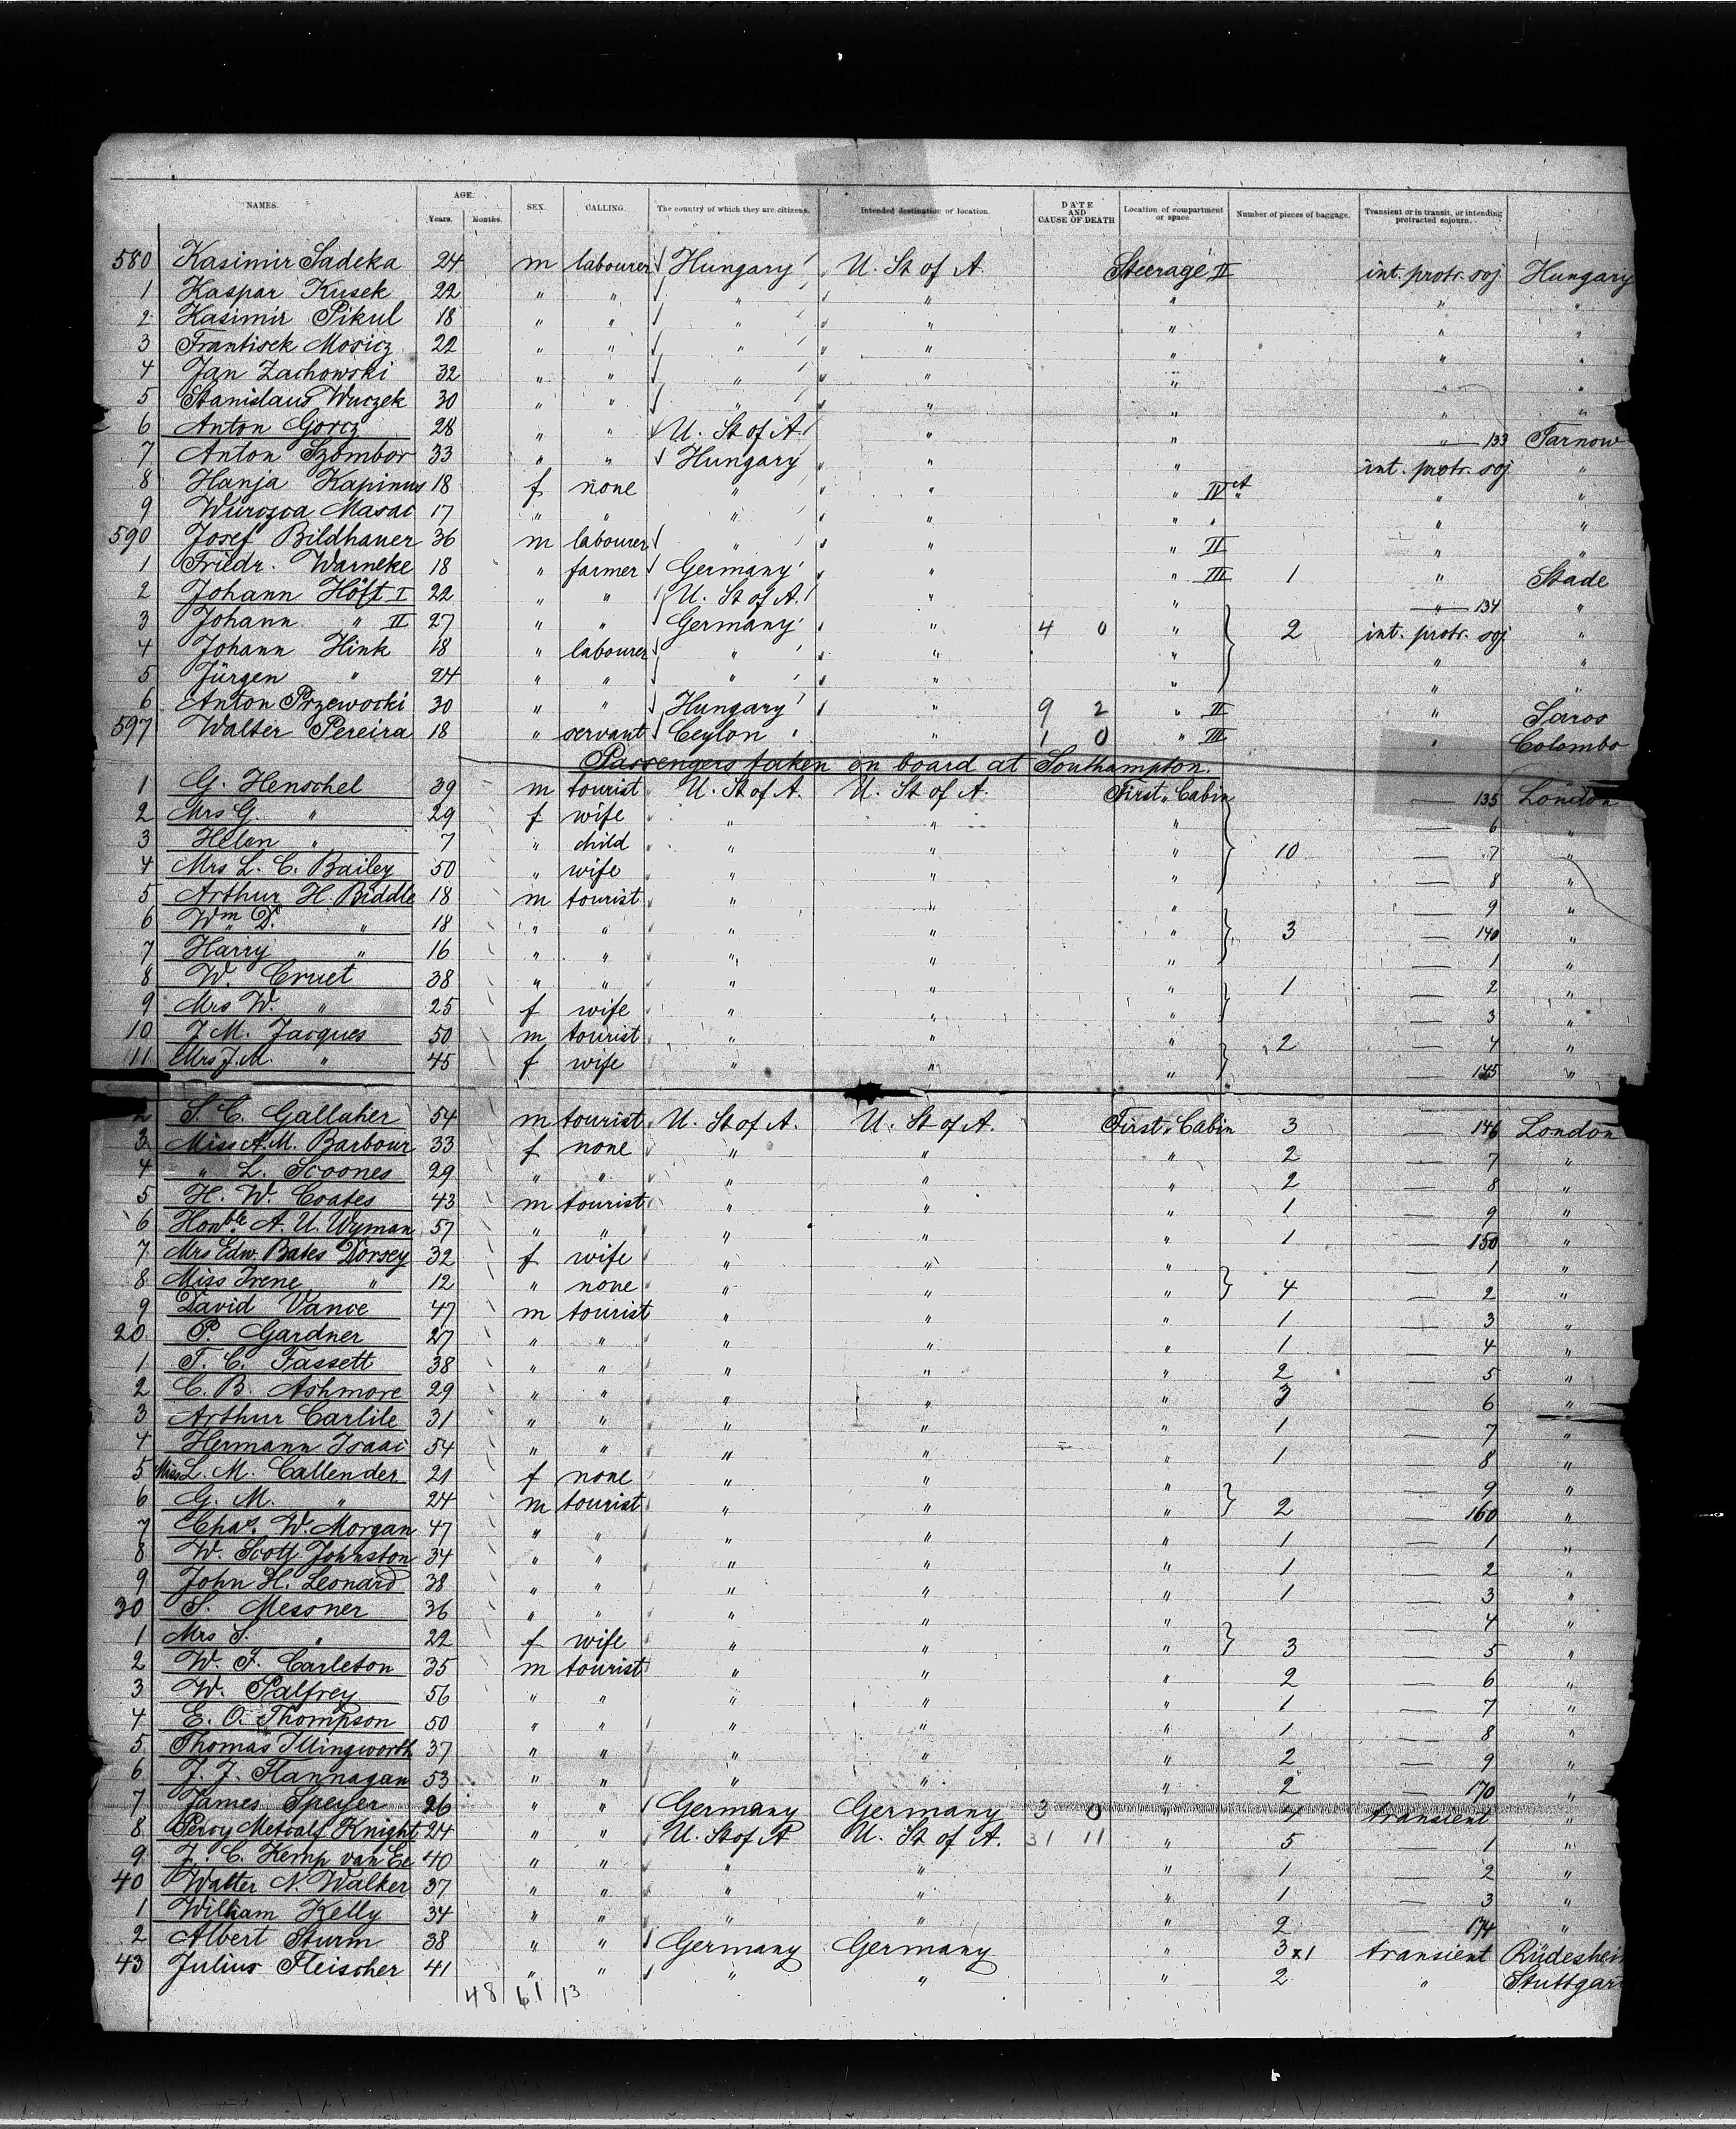 NAMES. AGE. Years. Months. SEX. CALLING. The country of which they are citizens. Intended destination or location. DATE AND CAUSE OF DEATH Location of compartment or space. Number of pieces of baggage. Transient or in transit, or intending protracted sojourn.
580 Kasimir Sadeka 24 m labourer Hungary U. St of A. Steerage II int. protr. soj Hungary
1 Kaspar Kusek 22 " " " " " " "
2 Kasimir Pikul 18 " " " " " " "
3 Frantisek Mosicz 22 " " " " " " "
4 Jan Zachowski 32 " " " " " " "
5 Stanislaus Wuczek 30 " " " " " " "
6 Anton Gorcz 28 " " U. St of A. " " " 133 Tarnow
7 Anton Szombor 33 " " Hungary " " int. protr. soj "
8 Hanja Kapinus 18 f none " " " IV A " "
9 Masac 17 " " " " " " " "
590 Josef Bildhauer 36 m labourer " " " II " "
1 Friedr. Warneke 18 " farmer Germany " " III 1 " Stade
2 Johann Höft I 22 " " U. St of A. " " " 134 "
3 Johann " II 27 " " Germany " 4 0 " 2 int. protr. soj "
4 Johann Hink 18 " labourer " " " " "
5 Jürgen " 24 " " " " " " "
6 Anton Przewocki 30 " " Hungary " 9 2 " II " Saros
597 Walter Pereira 18 " servant Ceylon " 1 0 " III " Colombo
Passengers taken on board at Southampton.
1 G. Henschel 39 m tourist U. St of A. U. St of A. First Cabin 135 London
2 Mrs G. " 29 f wife " " " 6 "
3 Helen " 7 " child " " " 10 7 "
4 Mrs L. C. Bailey 50 " wife " " " 8 "
5 Arthur H. Biddle 18 m tourist " " " 9 "
6 Wm D. " 18 " " " " " 3 140 "
7 Harry " 16 " " " " " 1 "
8 W. Cruet 38 " " " " " 1 2 "
9 Mrs W. " 25 f wife " " " 3 "
10 J. M. Jacques 50 m tourist " " " 2 4 "
11 Mrs J. M. " 45 f wife " " " 145 "
2 S. C. Gallaher 54 m tourist U. St of A. U. St of A. First Cabin 3 146 London
3 Miss A. M. Barbour 33 f none " " " 2 7 "
4 " L. Scoones 29 " " " " " 2 8 "
5 H. W. Coates 43 m tourist " " " 1 9 "
6 Honble A. U. Wyman 57 " " " " " 1 150 "
7 Mrs Edw. Bates Dorsey 32 f wife " " " 1 "
8 Miss Irene " 12 " none " " " 4 2 "
9 David Vance 47 m tourist " " " 1 3 "
20 P. Gardner 27 " " " " " 1 4 "
1 T. C. Fassett 38 " " " " " 2 5 "
2 C. B. Ashmore 29 " " " " " 3 6 "
3 Arthur Carlile 31 " " " " " 1 7 "
4 Hermann Isaac 54 " " " " " 1 8 "
5 Miss L. M. Callender 21 f none " " " 9 "
6 G. M. " 24 m tourist " " " 2 160 "
7 Chas. W. Morgan 47 " " " " " 1 1 "
8 W. Scott Johnston 34 " " " " " 1 2 "
9 John H. Leonard 38 " " " " " 1 3 "
30 S. Messner 36 " " " " " 4 "
1 Mrs S. " 22 f wife " " " 3 5 "
2 W. F. Carleton 35 m tourist " " " 2 6 "
3 W. Palfrey 56 " " " " " 1 7 "
4 E. O. Thompson 50 " " " " " 1 8 "
5 Thomas Illingworth 37 " " " " " 2 9 "
6 J. J. Flannagan 53 " " " " " 2 170 "
7 James Speyer 26 " " Germany Germany 3 0 " 4 transient "
8 Percy Metcalf Knight 24 " " U. St of A U. St of A. 31 11 " 5 1 "
9 J. C. Kemp van Ee 40 " " " " " 1 2 "
40 Walter N. Walker 37 " " " " " 1 3 "
1 William Kelly 34 " " " " " 2 174 "
2 Albert Sturm 38 " " Germany Germany " 3x1 transient Rüdesheim
43 Julius Fleischer 41 " " " " " 2 " Stuttgart
48 61 13